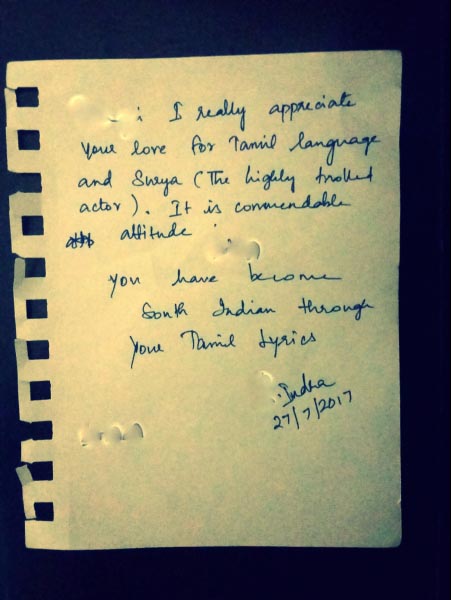 : I really appreciate
your love for Tamil language
and Sureya (The highly trolled
actor). It is commendable
attitude
You have become
South Indian through
your Tamil Lyrics
Indra
27/7/2017